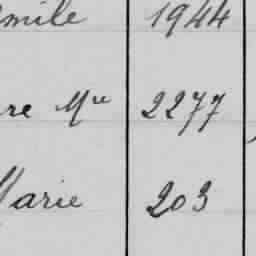 mile 1944
re Mlle 2277
Marie 203